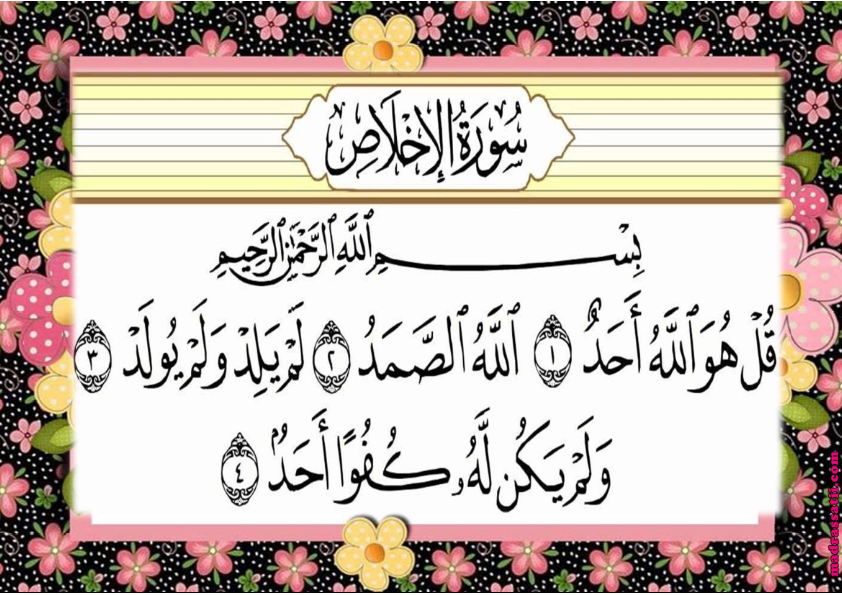 سُورَةُ الإِخْلَاصِ
بِسْمِ ٱللَّهِ ٱلرَّحْمَٰنِ ٱلرَّحِيمِ
قُلْ هُوَ ٱللَّهُ أَحَدٌ ١ ٱللَّهُ ٱلصَّمَدُ ٢ لَمْ يَلِدْ وَلَمْ يُولَدْ ٣
وَلَمْ يَكُن لَّهُۥ كُفُوًا أَحَدٌۢ ٤
medrassatiy.com